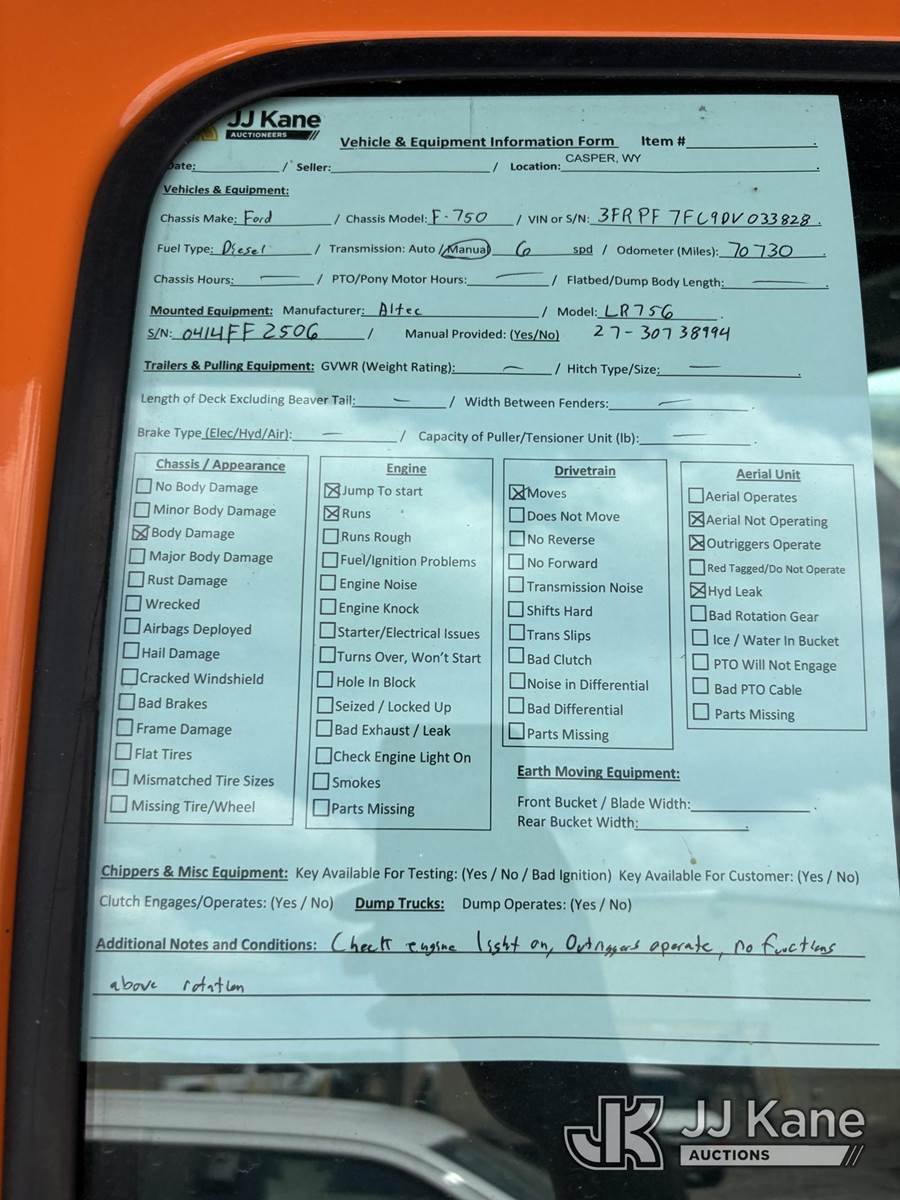 JJ Kane
AUCTIONEERS
Vehicle & Equipment Information Form Item #
Date: / Seller: / Location: CASPER, WY
Vehicles & Equipment:
Chassis Make: Ford / Chassis Model: F-750 / VIN or S/N: 3FRPF7FC9DV033828.
Fuel Type: Diesel / Transmission: Auto / Manual 6 spd / Odometer (Miles): 70730
Chassis Hours: — / PTO/Pony Motor Hours: — / Flatbed/Dump Body Length: —
Mounted Equipment: Manufacturer: Altec / Model: LR756
S/N: 0414FF2506 / Manual Provided: (Yes/No) 27-30738994
Trailers & Pulling Equipment: GVWR (Weight Rating): — / Hitch Type/Size: —
Length of Deck Excluding Beaver Tail: — / Width Between Fenders: —
Brake Type (Elec/Hyd/Air): — / Capacity of Puller/Tensioner Unit (lb): —
Chassis / Appearance
☐ No Body Damage
☐ Minor Body Damage
☒ Body Damage
☐ Major Body Damage
☐ Rust Damage
☐ Wrecked
☐ Airbags Deployed
☐ Hail Damage
☐ Cracked Windshield
☐ Bad Brakes
☐ Frame Damage
☐ Flat Tires
☐ Mismatched Tire Sizes
☐ Missing Tire/Wheel
Engine
☒ Jump To start
☒ Runs
☐ Runs Rough
☐ Fuel/Ignition Problems
☐ Engine Noise
☐ Engine Knock
☐ Starter/Electrical Issues
☐ Turns Over, Won't Start
☐ Hole In Block
☐ Seized / Locked Up
☐ Bad Exhaust / Leak
☐ Check Engine Light On
☐ Smokes
☐ Parts Missing
Drivetrain
☒ Moves
☐ Does Not Move
☐ No Reverse
☐ No Forward
☐ Transmission Noise
☐ Shifts Hard
☐ Trans Slips
☐ Bad Clutch
☐ Noise in Differential
☐ Bad Differential
☐ Parts Missing
Aerial Unit
☐ Aerial Operates
☒ Aerial Not Operating
☒ Outriggers Operate
☐ Red Tagged/Do Not Operate
☒ Hyd Leak
☐ Bad Rotation Gear
☐ Ice / Water In Bucket
☐ PTO Will Not Engage
☐ Bad PTO Cable
☐ Parts Missing
Earth Moving Equipment:
Front Bucket / Blade Width:
Rear Bucket Width:
Chippers & Misc Equipment: Key Available For Testing: (Yes / No / Bad Ignition) Key Available For Customer: (Yes / No)
Clutch Engages/Operates: (Yes / No) Dump Trucks: Dump Operates: (Yes / No)
Additional Notes and Conditions: Check engine light on, Outriggers operate, no functions
above rotation
JK JJ Kane
AUCTIONS